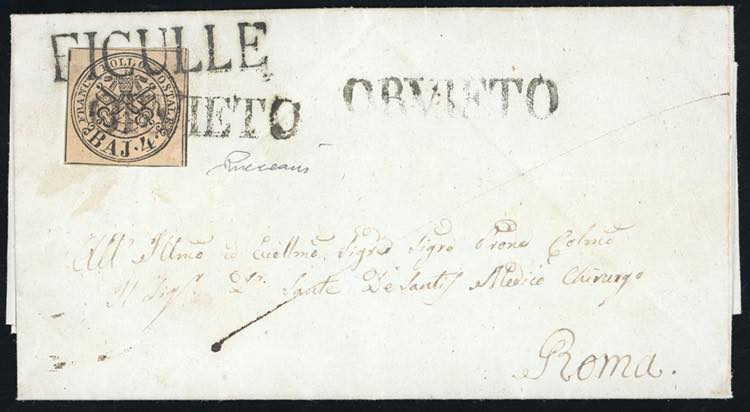 FICULLE
FRANCO BOLLO POSTALE
BAJ. 4
ORVIETO
ORVIETO
All' Illmo ed Ecellmo Sigre Sigre Prone Colmo
Il Sigr. Dr. Sante DeSantis Medico Chirurgo
Roma.